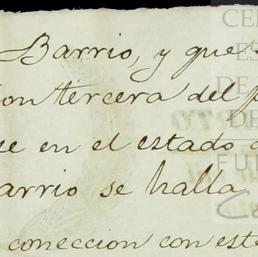 Barrio, y que
on tercera del
e en el estado
arrio se halla
coneccion con est